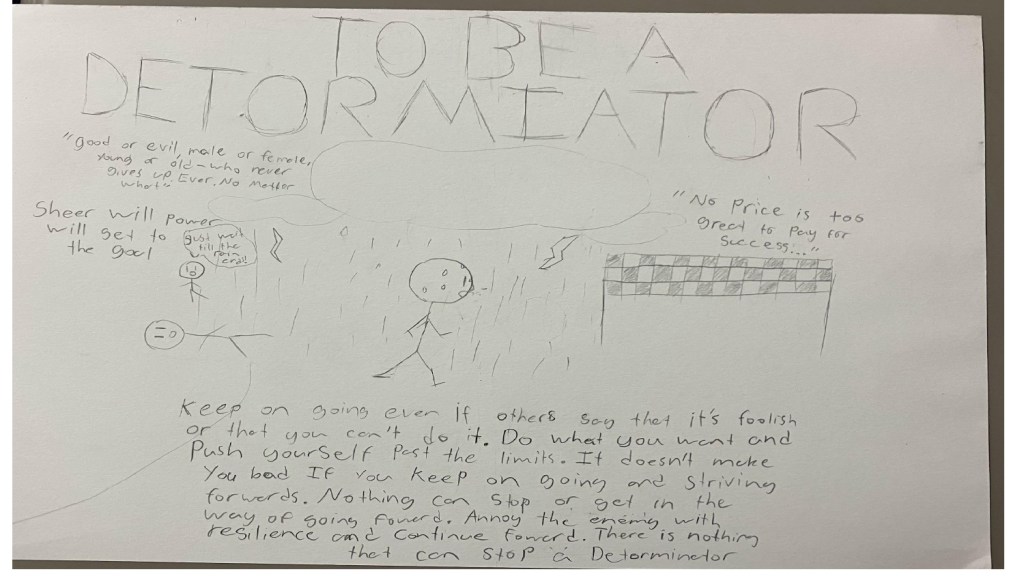 TO BE A
DETORMIATOR
"good or evil, male or female,
young or old-who never
gives up. Ever. No Matter
what"
Sheer will power
will get to
the goal
just wait
till the
rain
ends!
"No Price is too
great to Pay for
Success..."
Keep on going even if others say that it's foolish
or that you can't do it. Do what you want and
Push yourself Past the limits. It doesn't make
You bad If you Keep on going and striving
forwards. Nothing can stop or get in the
way of going foward. Annoy the enemy with
resilience and Continue Foward. There is nothing
that can Stop a Determinator